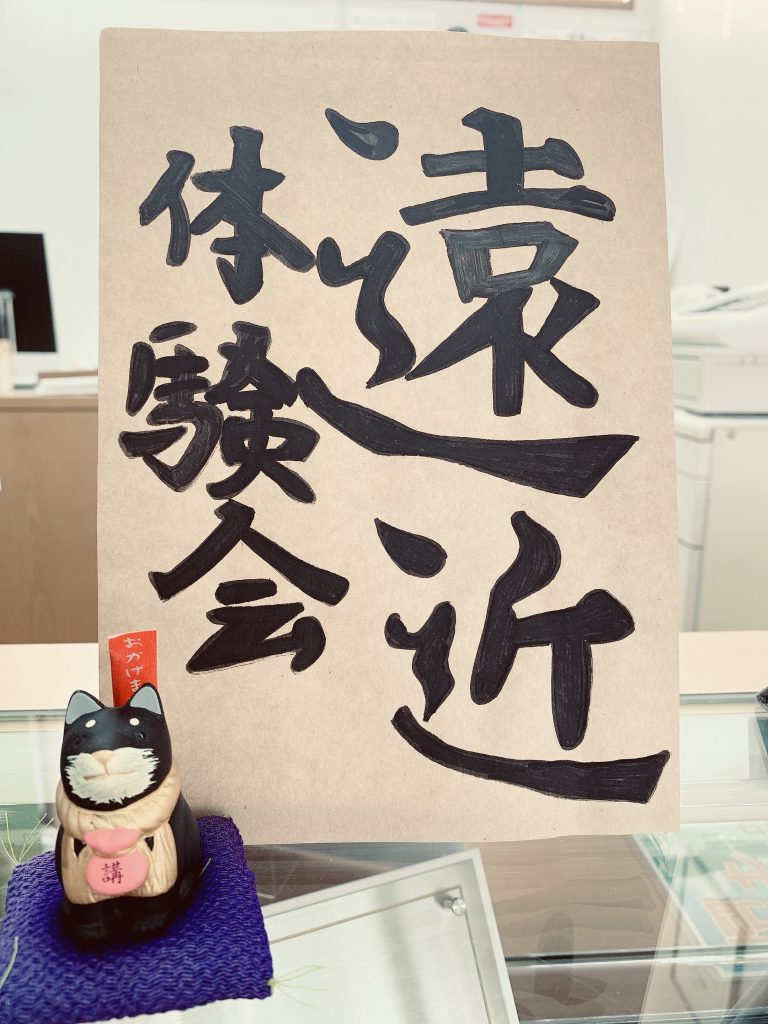 遠近
体験会
おかげ
講